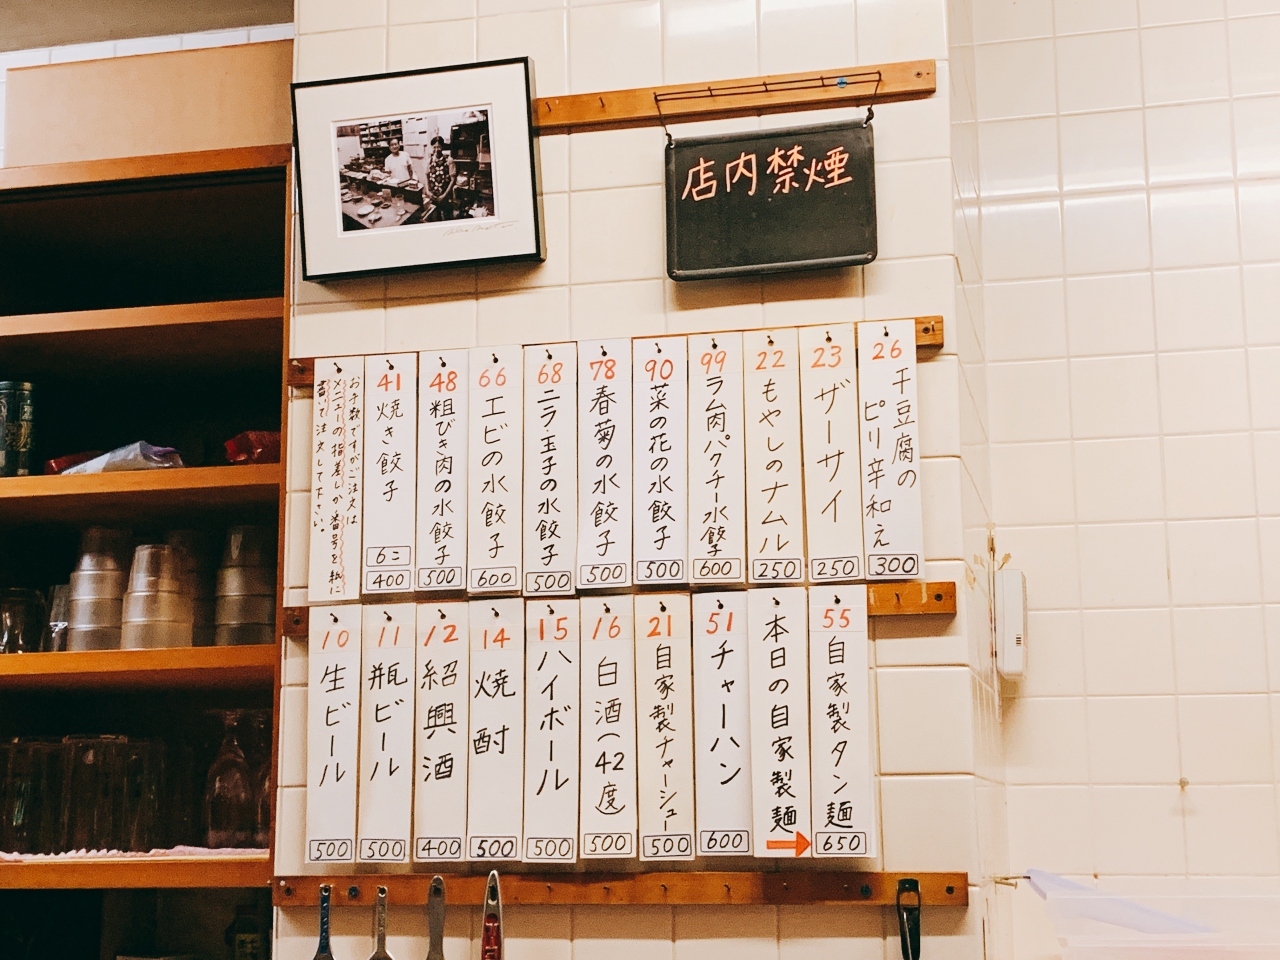 店内禁煙
お手数ですがご注文は
メニューの指差しか番号を紙に
書いて注文して下さい。
41
焼き餃子
6コ
400
48
粗びき肉の水餃子
500
66
エビの水餃子
600
68
ニラ玉子の水餃子
500
78
春菊の水餃子
500
90
菜の花の水餃子
500
99
ラム肉パクチー水餃子
600
22
もやしのナムル
250
23
ザーサイ
250
26
干豆腐の
ピリ辛和え
300
10
生ビール
500
11
瓶ビール
500
12
紹興酒
400
14
焼酎
500
15
ハイボール
500
16
白酒(42度)
500
21
自家製チャーシュー
500
51
チャーハン
600
本日の自家製麺
55
自家製タン麺
650